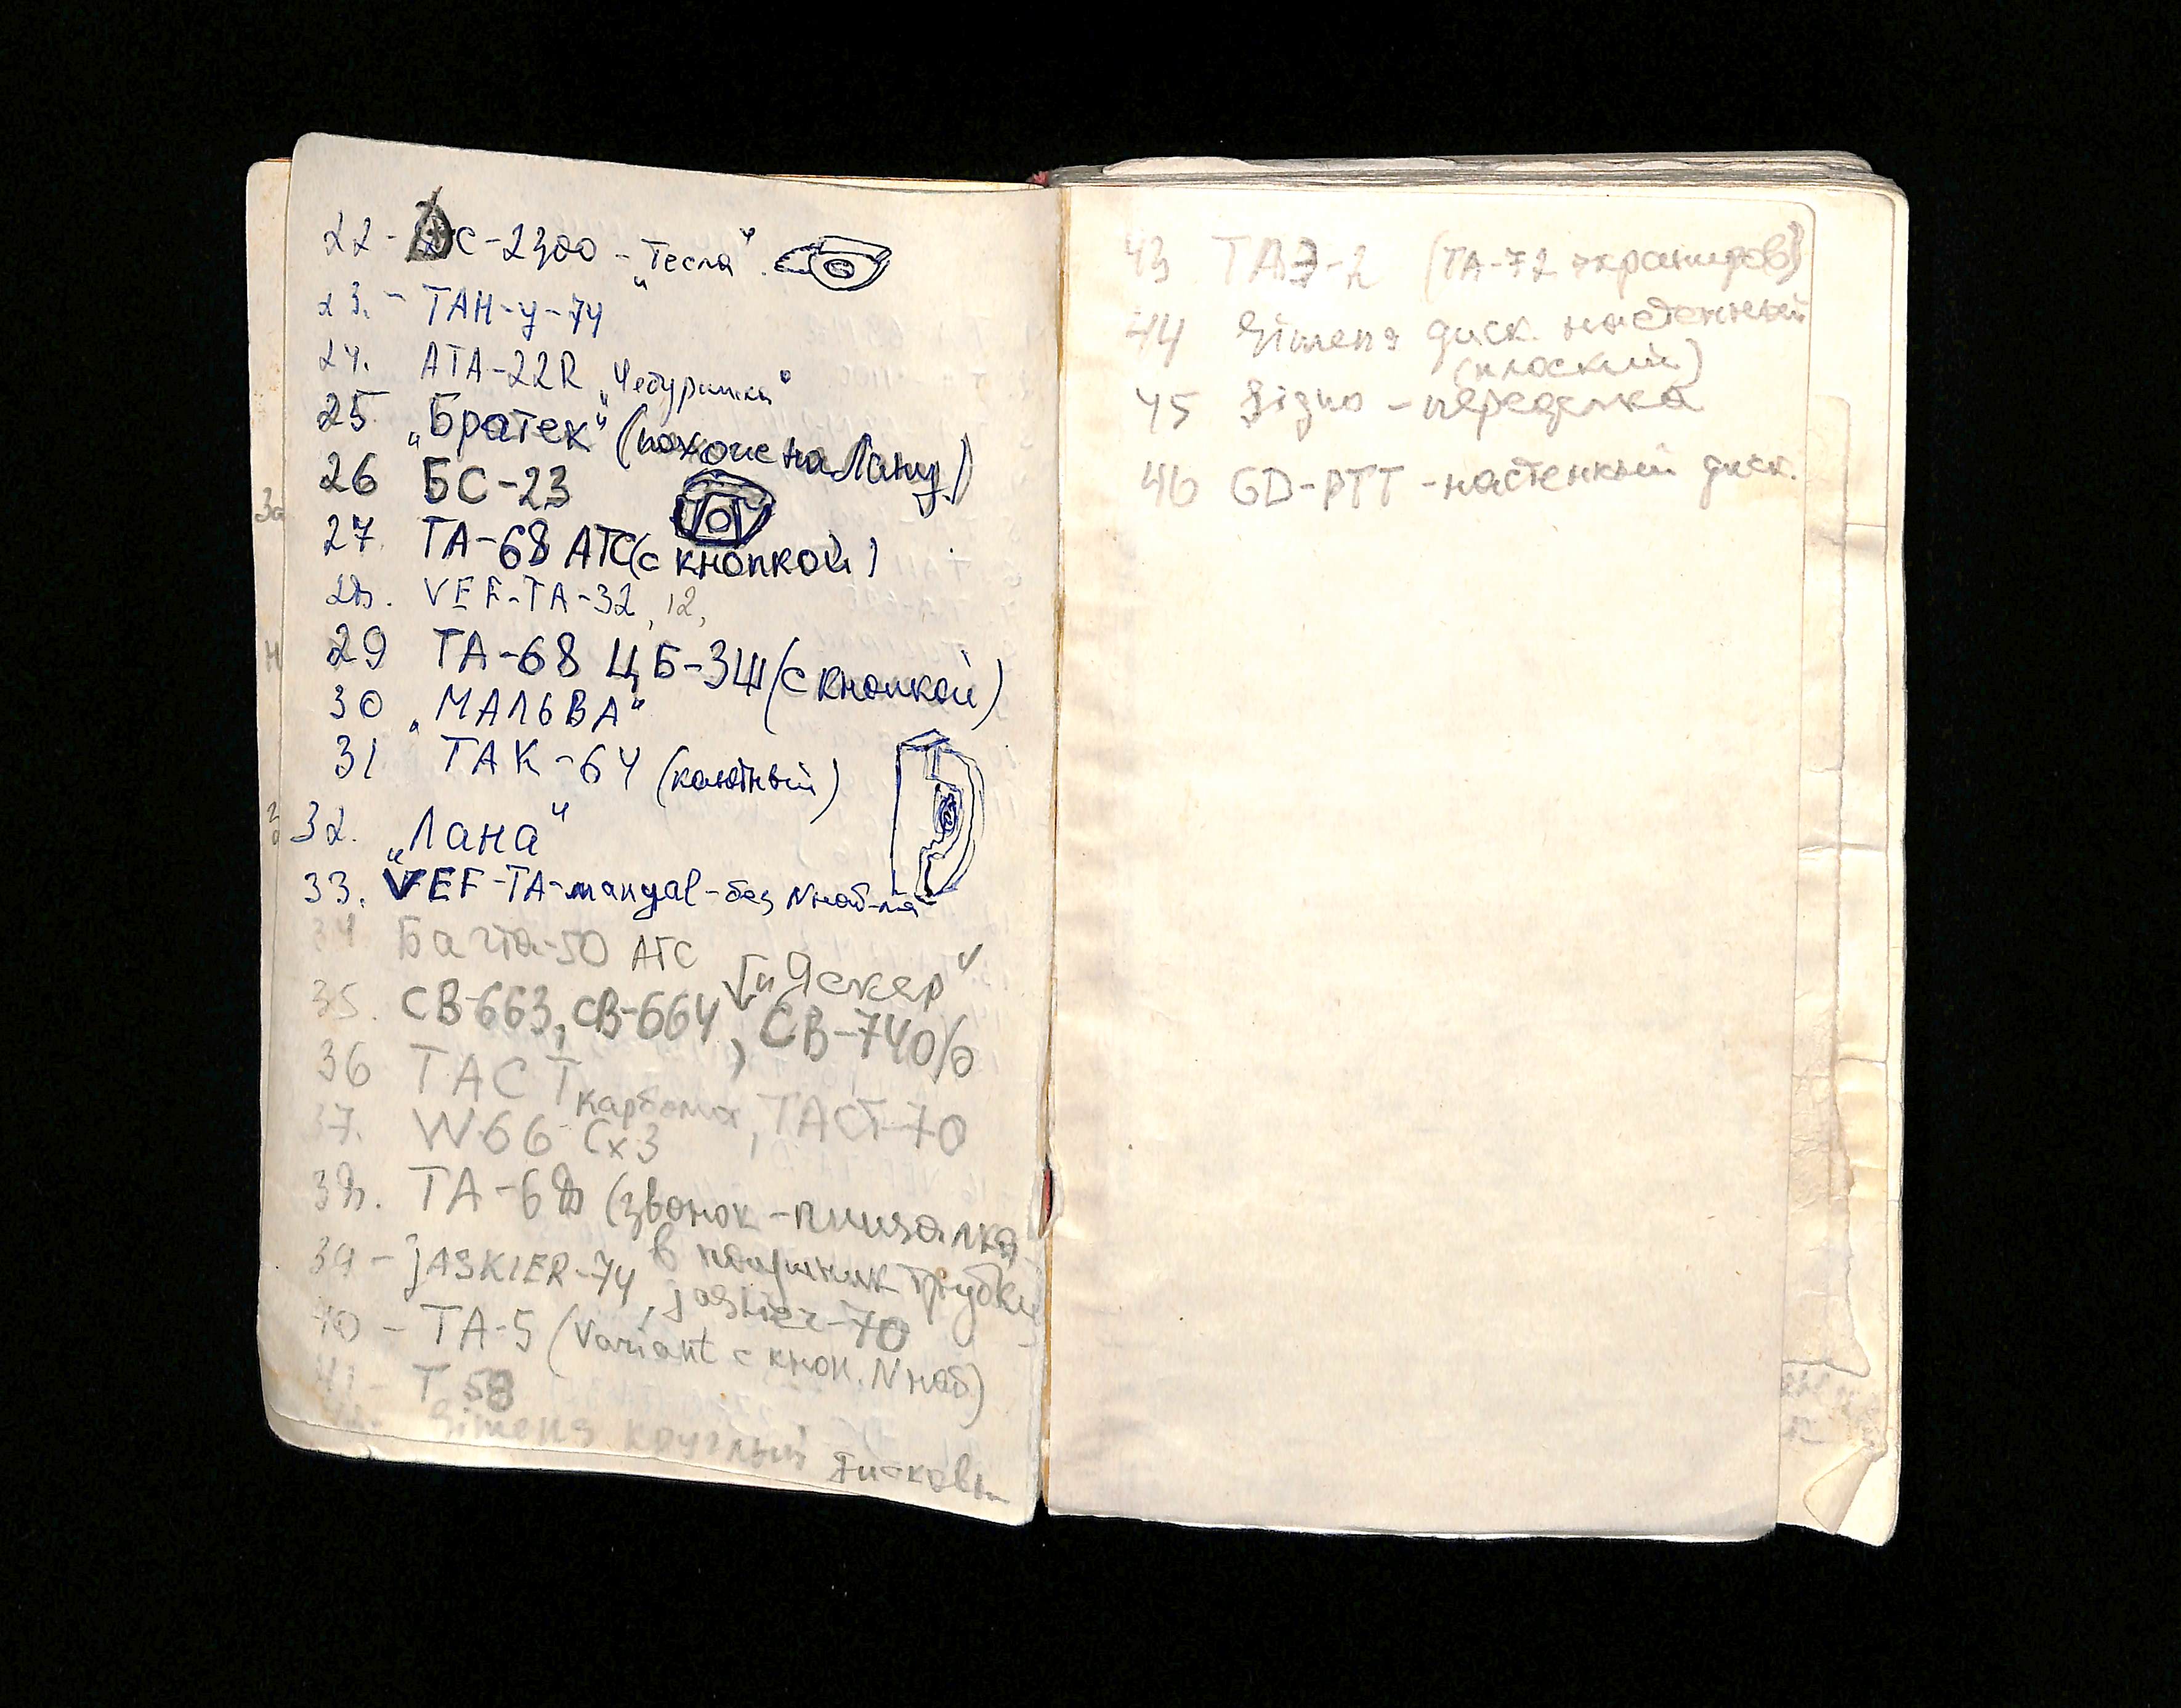 22 - ДС-2300 - „Тесла"
23. - ТАН-У-74
24. АТА-22R „Чебурашка"
25 „Братек" (похоже на Лану)
26 БС-23
27. ТА-68 АТС (с кнопкой)
28. VEF-TA-32, 12,
29 ТА-68 ЦБ-3Ш (с кнопкой)
30 „МАЛЬВА"
31 ТАК-64 (каютный)
32. „Лана"
33. VEF-TA-manyal - без Nнаб-ля
34 Багта-50 АТС
„Яскер"
35. СВ-663, СВ-664, СВ-740/6
36 ТАСТ карболит, ТАСТ-70
37. W-66 Сх3
38. ТА-68 (звонок-пищалка
в наушник трубки)
39 - jASKIER-74, jaskier-70
40 - ТА-5 (Variant с кноп. Nнаб)
41 - Т 58
42. Simens круглый дисковы
43 ТАЭ-2 (ТА-72 экраниров)
44 Simens диск. настенный
(плоский)
45 - переделка
46 GD-PTT - настенный диск.